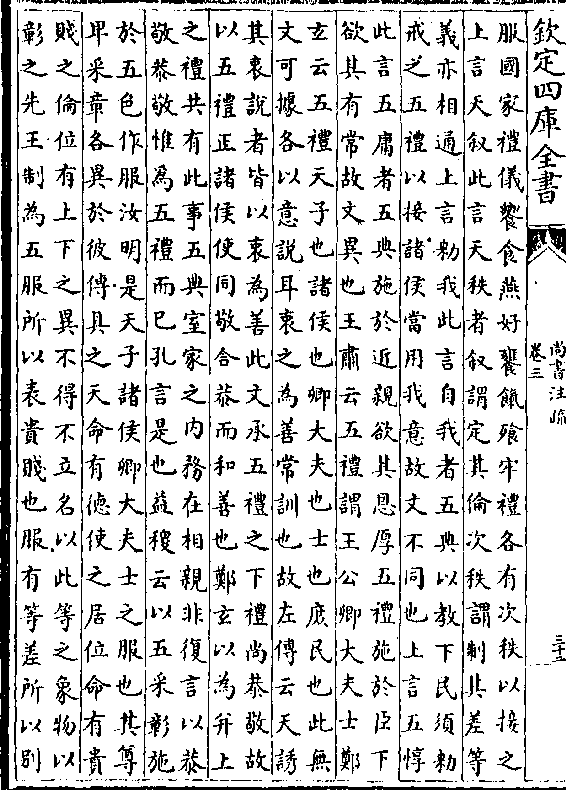 欽定四庫全書
尚書注疏
卷三
三十二
服國家禮儀饗食燕好饔餼飱牢禮各有次秩以接之
上言天叙此言天秩者叙謂定其倫次秩謂制其差等
義亦相通上言勑我此言自我者五典以教下民須勑
戒之五禮以接諸侯當用我意故文不同也上言五惇
此言五庸者五典施於近親欲其恩厚五禮施於臣下
欲其有常故文異也王肅云五禮謂王公卿大夫士鄭
玄云五禮天子也諸侯也卿大夫也士也庶民也此無
文可據各以意說耳衷之為善常訓也故左傳云天誘
其衷說者皆以衷為善此文承五禮之下禮尚恭敬故
以五禮正諸侯使同敬合恭而和善也鄭玄以為并上
之禮共有此事五典室家之內務在相親非復言以恭
敬恭敬惟為五禮而已孔言是也益稷云以五采彰施
於五色作服汝明是天子諸侯卿大夫士之服也其尊
卑采章各異於彼傳具之天命有德使之居位命有貴
賤之倫位有上下之異不得不立名以此等之象物以
彰之先王制為五服所以表貴賤也服有等差所以別